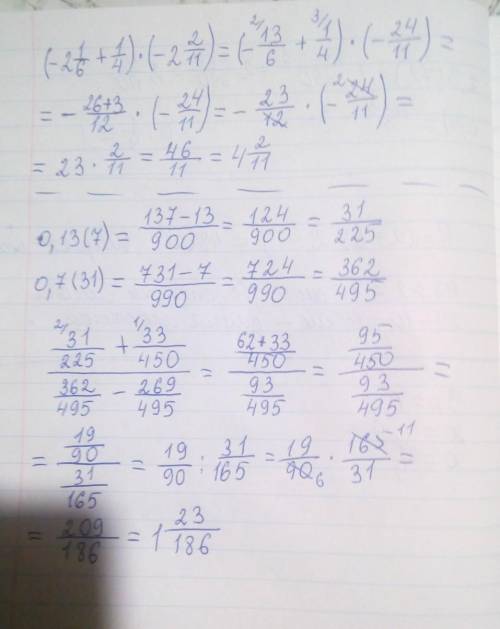 (-2 1/6 + 1/4) · (-2 2/11) = (- ²⁾13/6 + ³⁾1/4) · (- 24/11) =
= - 26+3/12 · (- 24/11) = - 23/12 · (- ²24/11) =
= 23 · 2/11 = 46/11 = 4 2/11
0,13(7) = 137-13/900 = 124/900 = 31/225
0,7(31) = 731-7/990 = 724/990 = 362/495
(²⁾31/225 + ¹⁾33/450)/(362/495 - 269/495) = (62+33/450)/(93/495) = (95/450)/(93/495) =
= (19/90)/(31/165) = 19/90 : 31/165 = 19/90 6 · 165 11/31 =
= 209/186 = 1 23/186